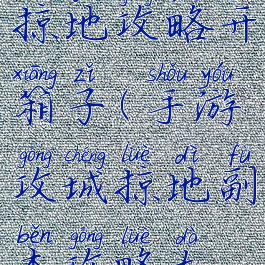 掠地攻略开
xiāng zǐ shǒu yóu
箱子(手游
gōng chéng lüè dì fù
攻城掠地副
běn gōng lüè dà
本攻略大